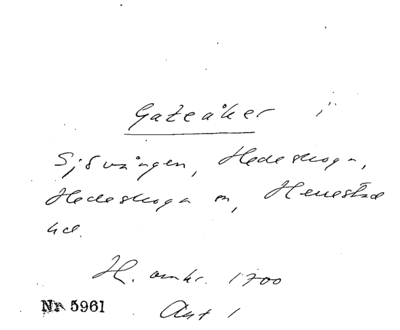 Gateåker i
Sjövången, Hedeskoga,
Hedeskoga sn, Herrestad
hd.
H. omkr. 1700
Avt 1
Nr 5961